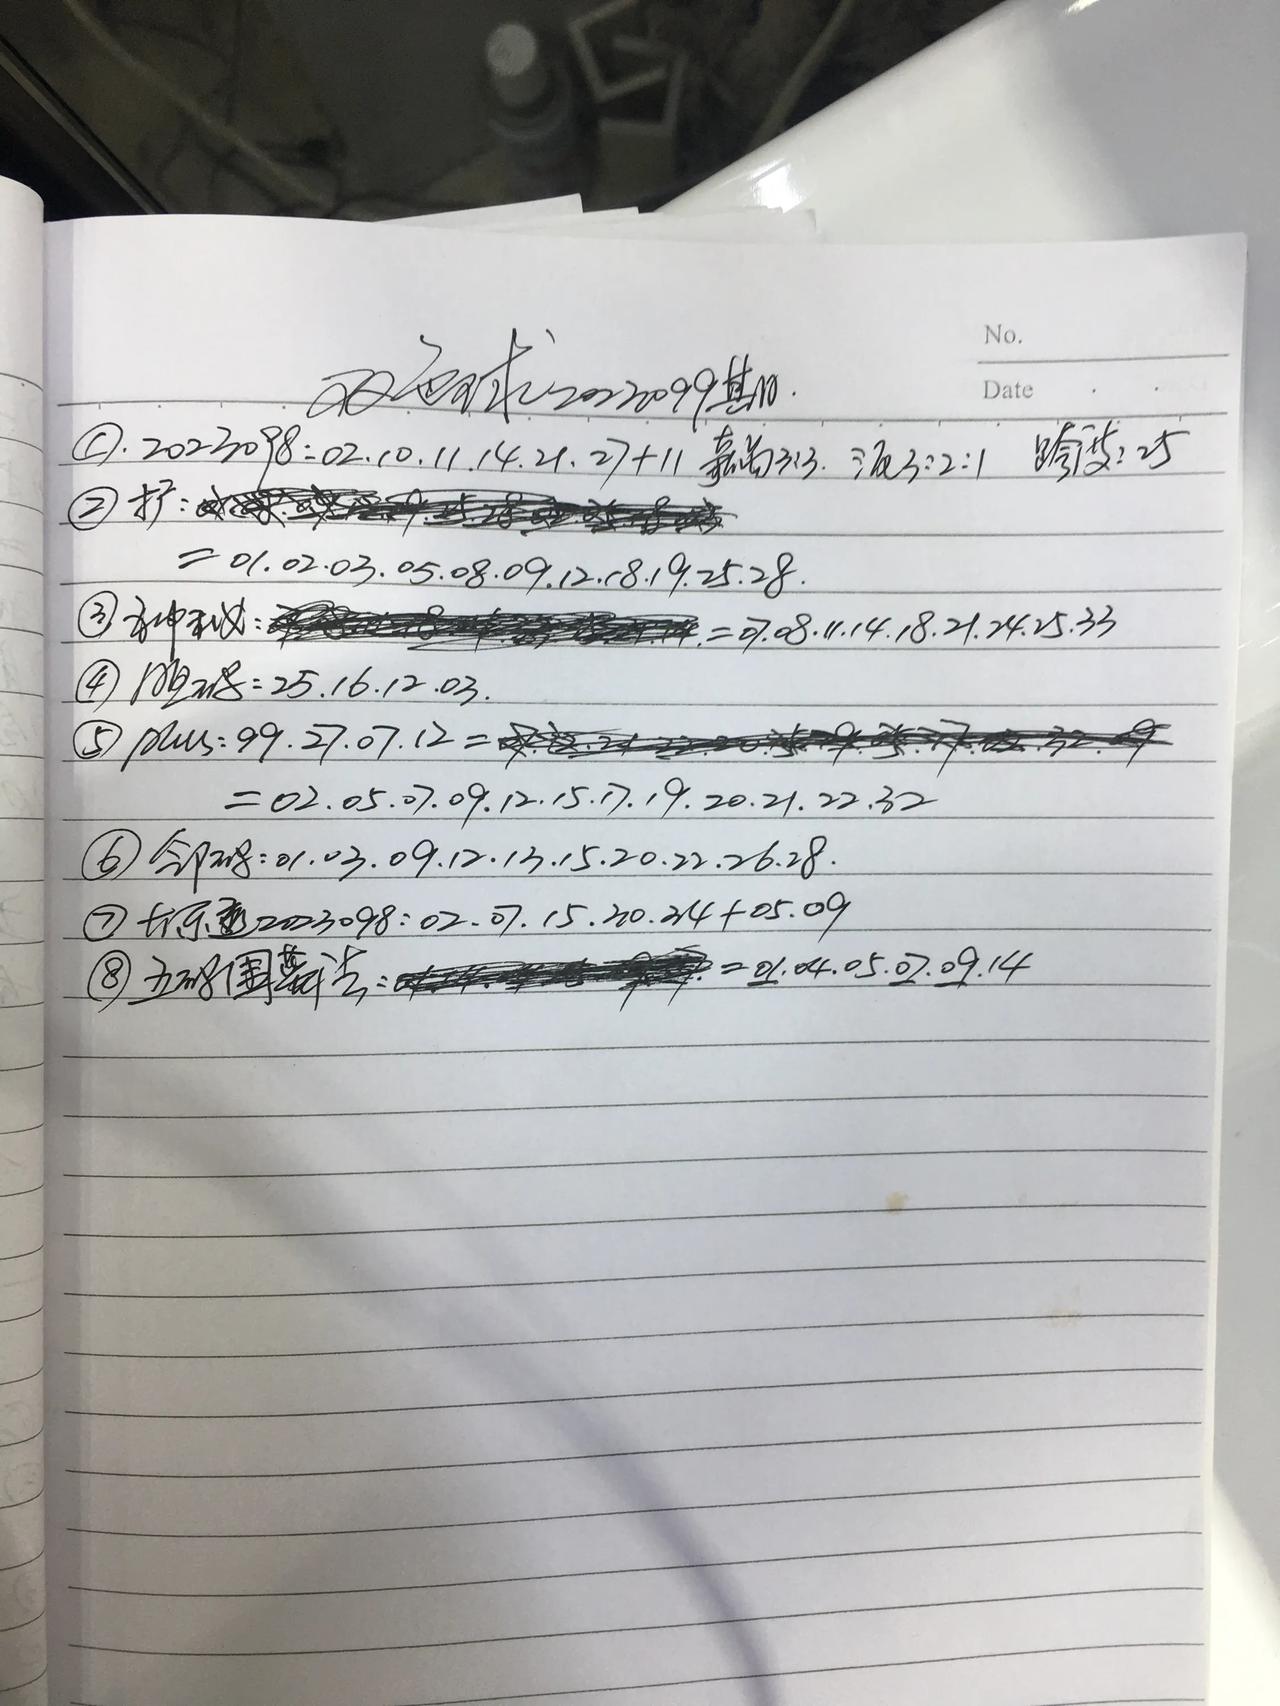 No.
Date
双色球2023099期
①.2023098:02.10.11.14.21.27+11 3:3. 3:2:1 跨度:25
②
=01.02.03.05.08.09.12.18.19.25.28.
③ =07.08.11.14.18.21.24.25.33
④ 码:25.16.12.03.
⑤ plus:99.27.07.12=
=02.05.07.09.12.15.17.19.20.21.22.32
⑥ 邻码:01.03.09.12.13.15.20.22.26.28.
⑦大乐透2023098:02.07.15.20.34+05.09
⑧五码围蓝法: =01.04.05.07.09.14